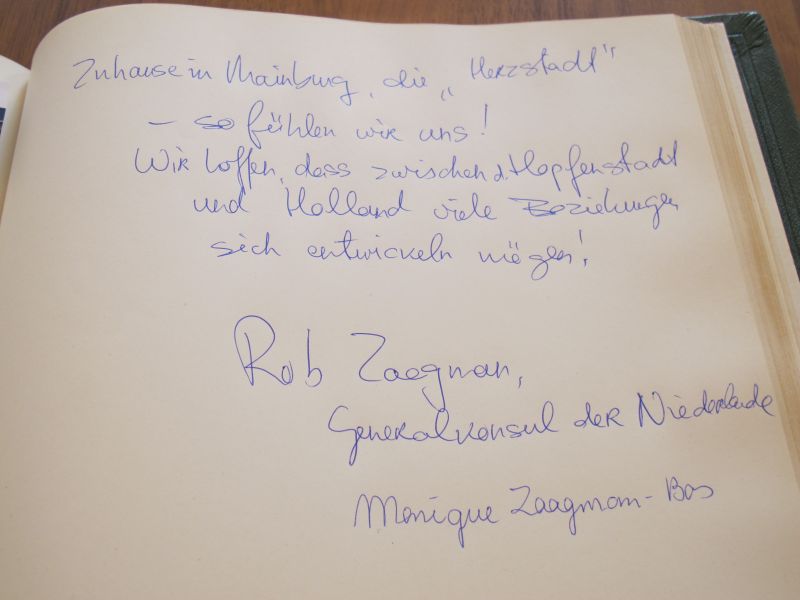 Zuhause in Mainburg, die „Herzstadt"
– so fühlen wir uns!
Wir hoffen, dass zwischen d. Hopfenstadt
und Holland viele Beziehungen
sich entwickeln mögen!
Rob Zaagman,
Generalkonsul der Niederlande
Monique Zaagman-Bos